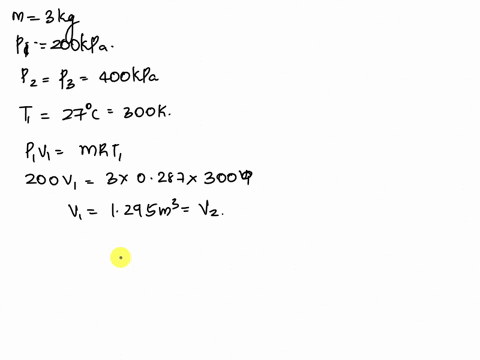 m = 3 kg
P1 = 200 kPa.
P2 = P3 = 400 kPa
T1 = 27°C = 300K.
P1V1 = mRT1
200 V1 = 3 × 0.287 × 300
V1 = 1.295 m³ = V2.